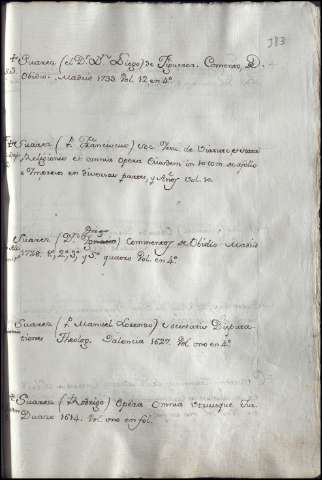 383
Suarez (el Dr. Dn. Diego) de Figueroa. Coment. D.
Obidio. Madrid 1733. Vol. 12. en 4º
Suarez (P. Franciscus) Soc. Jesu de
Religionis et omnia opera Eiusdem in 10 tom. de a folio
e Impresos en diversas partes, y Años Vol. 10.
Diego
Suarez (Dn. Ignacio) Comentos de Obidio Madrid
1728. 1º, 2º, 3º, y 5º quatro Vol. en 4º
Suarez (P. Manuel Lorenzo) Disputa-
tiones Theolog. Palencia 1627. Vol. uno en 4º
Suarez (Rodrigo) Opera Omnia Utriusque Jur.
Duaco 1614. Vol. uno en fol.